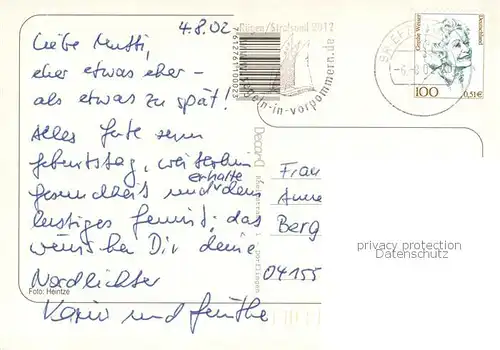 4.8.02
Liebe Mutti,
eher etwas eher –
als etwas zu spät!
Alles Gute zum
Geburtstag, weiterhin
erhalte
Gesundheit und dein
lustiges Gemüt; das
wünschen Dir deine
Nordlichter
Karin und
Foto: Heintze
7612761100023
Rügen/Stralsund 2012
segeln-in-vorpommern.de
BRIEF
Grethe Weiser
Deutschland
100
0,51€
Frau
Anne
Berg
04155
privacy protection
Datenschutz